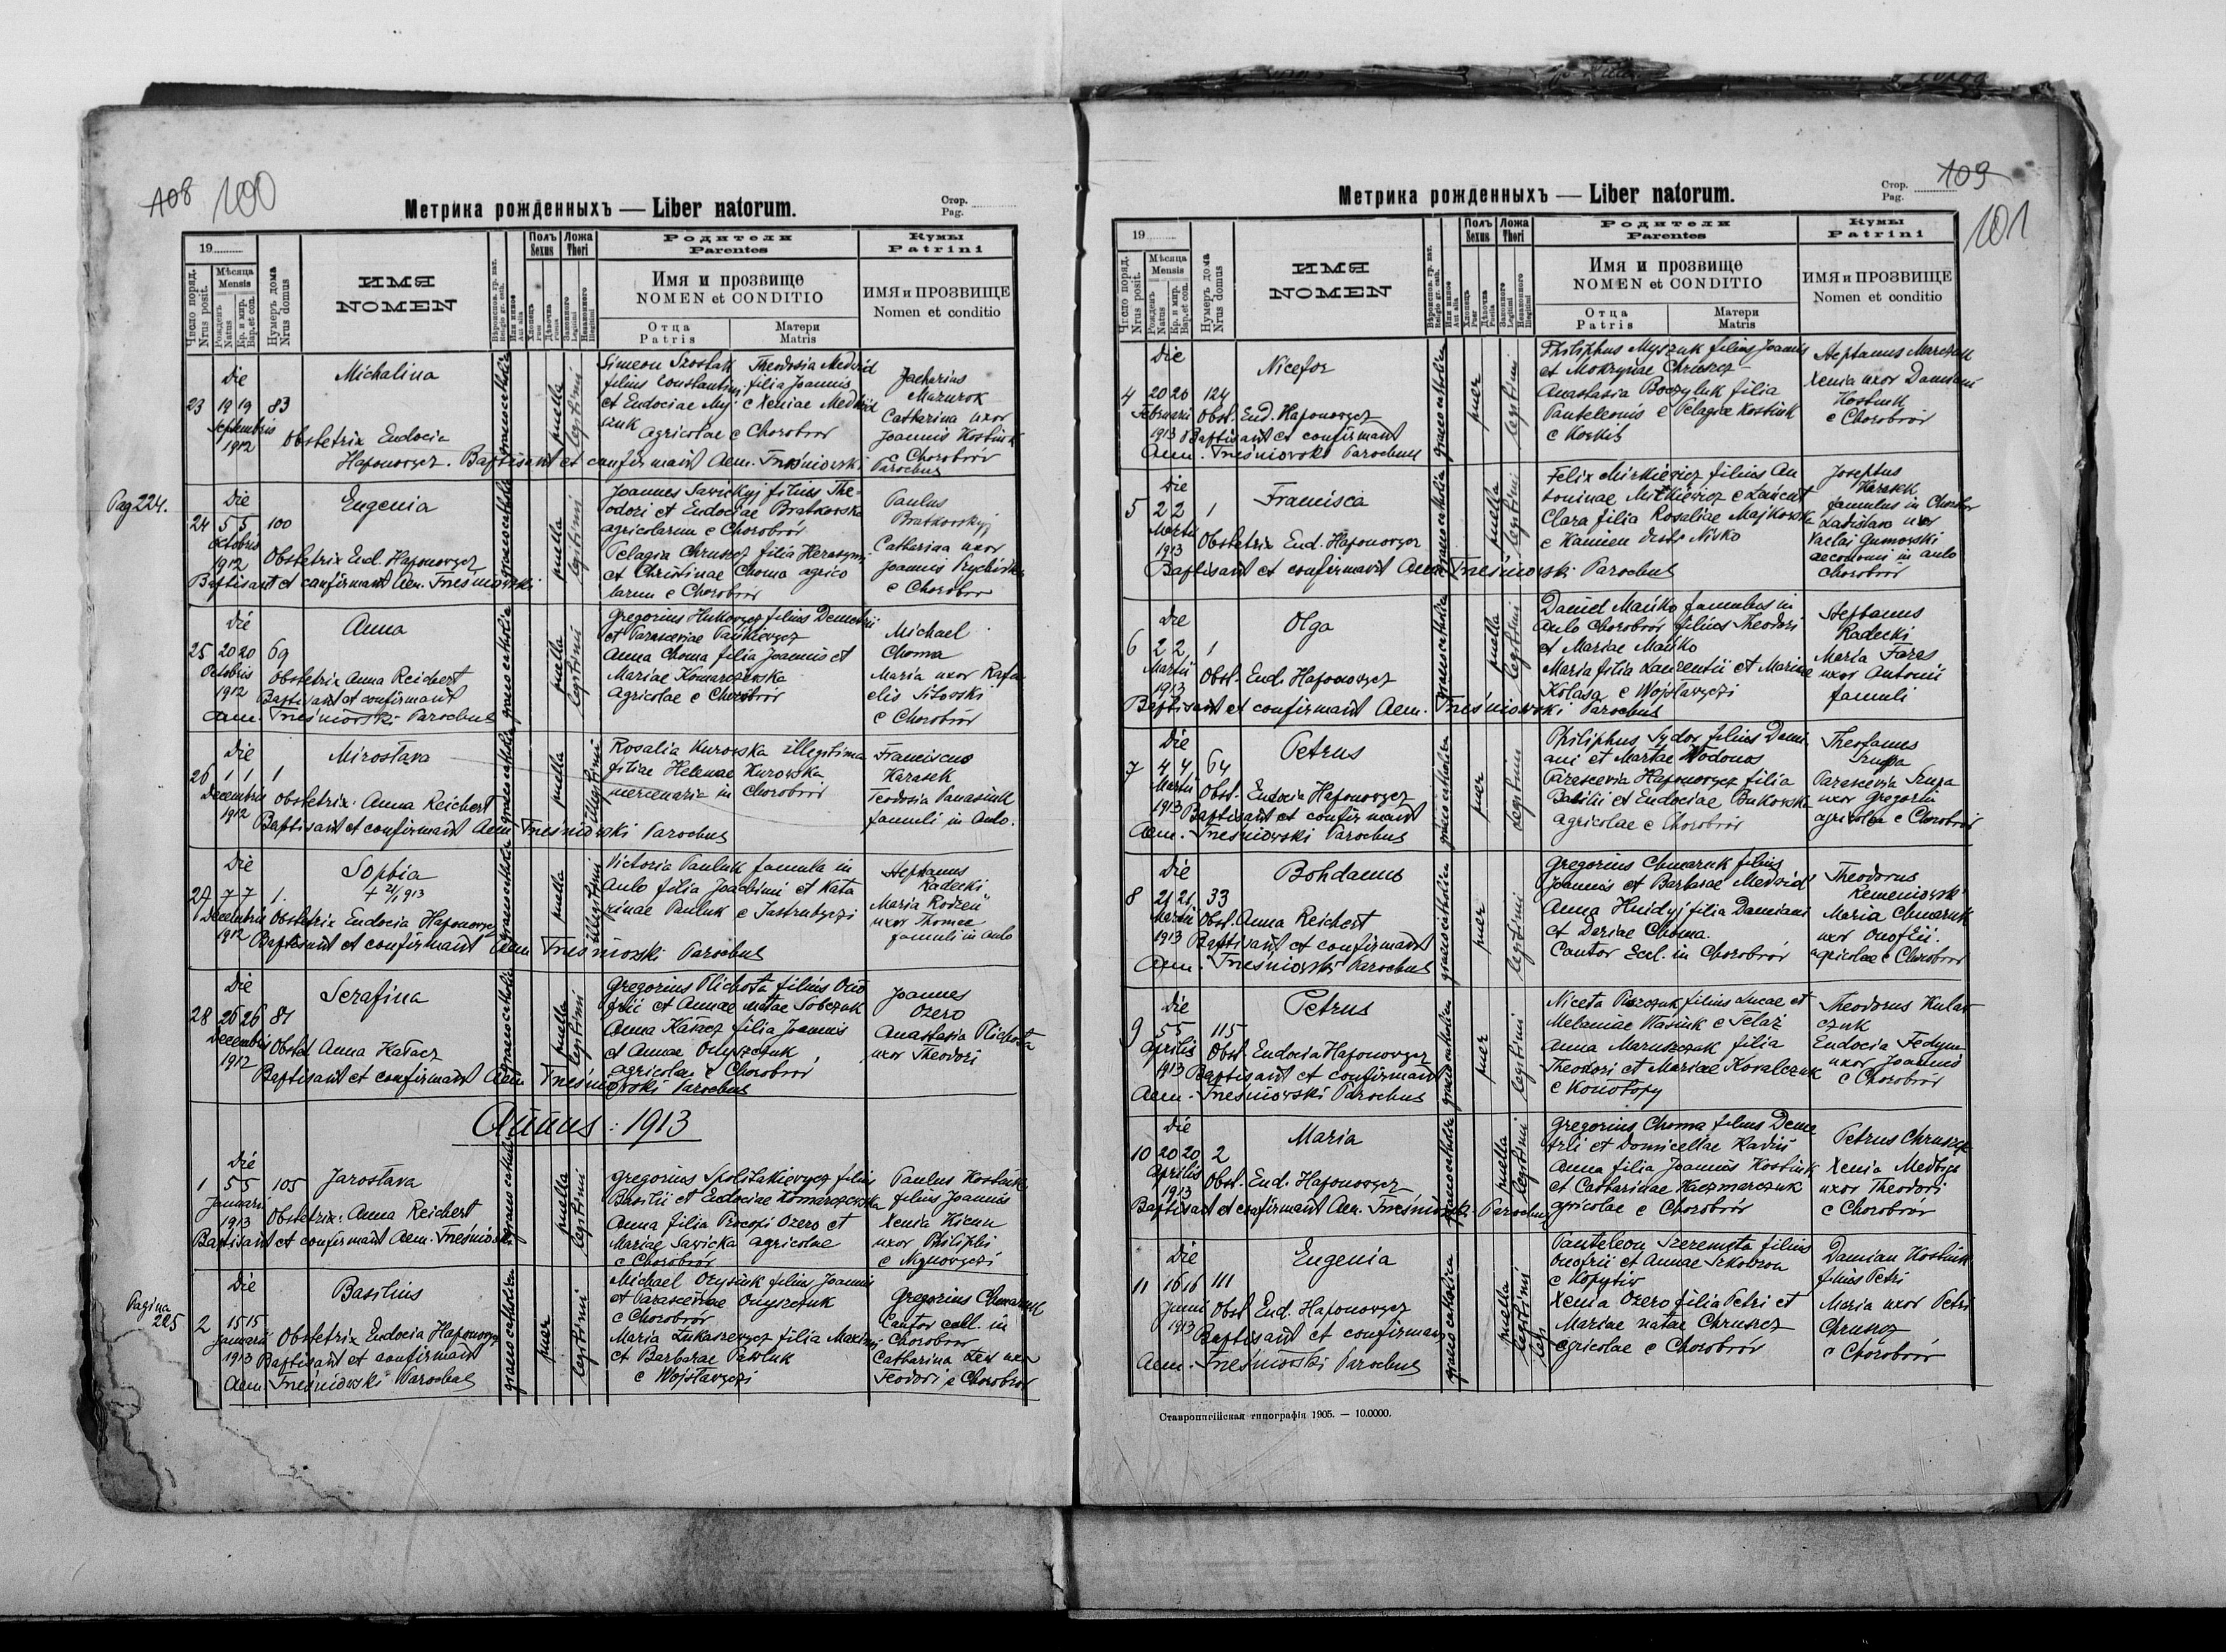 108 100
Метрика рожденныхъ — Liber natorum.
Стор.
Pag.
19
Число поряд.
Nrus posit.
Мѣсяца
Mensis
Рожденъ
Natus
Кр. и мир.
Bap. et con.
Нумеръ дома
Nrus domus
ИМЯ
NOMEN
Вѣроиспов. гр. кат.
Religio gr. cath.
Или иное
Aut alia
Полъ
Sexus
Хлопецъ
Puer
Дѣвочка
Puella
Ложа
Thori
Законного
Legitimi
Незаконного
Illegitimi
Родители
Parentes
Имя и прозвище
NOMEN et CONDITIO
Отца
Patris
Матери
Matris
Кумы
Patrini
ИМЯ и ПРОЗВИЩЕ
Nomen et conditio
23
Die
19 19
Septembris
1912
83
Michalina
Obstetrix Eudocia
Haponowycz. Baptisavit et confirmavit Aem. Treśniowski Parochus
graeco catholica
puella
legitimi
Simeon Szostak Theodosia Medwid
filius Constantini filia Joannis
et Eudociae Myj: e Xeniae Medwid
agricolae e Chorobrów
Zacharius
Mazurok
Catharina uxor
Joannis Kostiuk
e Chorobrów
Pag 224.
24
Die
5 5
Octobris
1912
100
Eugenia
Obstetrix Eud. Haponowycz
Baptisavit et confirmavit Aem. Treśniowski
graeco catholica
puella
legitimi
Joannes Sawickyj filius The-
odori et Eudociae Bratkowska
agricolarum e Chorobrów
Pelagia Chruszcz filia Herasymi
et Christinae Choma agrico
larum e Chorobrów
Paulus
Bratkowskyj
Catharina uxor
Joannis
e Chorobrow
25
Die
20 20
Octobris
1912
69
Anna
Obstetrix Anna Reichert
Baptisavit et confirmavit
Aem. Treśniowski Parochus
graeco catholica
puella
legitimi
Gregorius Hukowycz filius Demetrii
et Parasceviae Pańkiewycz
Anna Choma filia Joannis et
Mariae Komarczewska
agricolae e Chorobrów
Michael
Choma
Maria uxor Rafa
elis Sitowski
e Chorobrów
26
Die
1 1
Decembris
1912
1
Mirosława
Obstetrix: Anna Reichert
Baptisavit et confirmavit Aem. Treśniowski Parochus
graeco catholica
puella
illegitimi
Rosalia Kurowska illegitima
filiae Helenae Kurowska
mercenaria in Chorobrów
Franciscus
Karasek
Teodosia Panasiuk
famuli in Aulo.
27
Die
7 7
Decembris
1912
1.
Sophia
+ 21/1 913
Obstetrix Eudocia Haponowycz
Baptisavit et confirmavit Aem. Treśniowski Parochus
graeco catholica
puella
illegitimi
Victoria Pauluk famula in
Aulo filia Joachimi et Kata
rinae Pauluk e Jastrubyczi
Stephanus
Radecki
Maria Kodzeń
uxor Thomae
famuli in Aulo
28
Die
26 26
Decembris
1912
81
Serafina
Obstet Anna Kałacz
Baptisavit et confirmavit Aem. Treśniowski Parochus
graeco catholica
puella
legitimi
Gregorius Plichota filius Ono
frii et Annae natae Sobczuk
Anna Kałacz filia Joannis
et Annae Onyszczuk
agricolae e Chorobrów
Joannes
Ozero
Anastasia Plichota
uxor Theodori
Annus: 1913
1
Die
5 5
Januarii
1913
105
Jarosława
Obstetrix: Anna Reichert
Baptisavit et confirmavit Aem. Treśniowski
graeco catholica
puella
legitimi
Gregorius Spolitakiewycz filius
Basilii et Eudociae Komarczewska
Anna filia Procopi Ozero et
Mariae Sawicka agricolae
e Chorobrów
Paulus Kostiuk
filius Joannis
Xenia Hicun
uxor Philiphi
Pagina
225
2
Die
15 15
Januarii
1913
Basilius
Obstetrix Eudocia Haponowycz
Baptisavit et confirmavit
Aem. Treśniowski Parochus
graeco catholica
puer
legitimi
Michael Ozysiuk filius Joannis
et Parasceviae Onyszczuk
e Chorobrów
Maria Łukaszewycz filia Maximi
et Barbarae Pawluk
e Wojsławyczi
Gregorius Chmaruk
Cantor eccl. in
Chorobrów
Catharina Łew uxor
Teodori e Chorobrów
109
101
Метрика рожденныхъ — Liber natorum.
Стор.
Pag.
19
Число поряд.
Nrus posit.
Мѣсяца
Mensis
Рожденъ
Natus
Кр. и мир.
Bap. et con.
Нумеръ дома
Nrus domus
ИМЯ
NOMEN
Вѣроиспов. гр. кат.
Religio gr. cath.
Или иное
Aut alia
Полъ
Sexus
Хлопецъ
Puer
Дѣвочка
Puella
Ложа
Thori
Законного
Legitimi
Незаконного
Illegitimi
Родители
Parentes
Имя и прозвище
NOMEN et CONDITIO
Отца
Patris
Матери
Matris
Кумы
Patrini
ИМЯ и ПРОЗВИЩЕ
Nomen et conditio
4
Die
20 20
Februarii
1913
124
Nicefor
Obst. Eud. Haponowycz
Baptisavit et confirmavit
Aem. Treśniowski Parochus
graeco catholica
puer
legitimi
Philiphus Myszuk filius Joannis
et Mokrynae Chruszcz
Anastasia Boczyluk filia
Panteleonis e Pelagiae Kostiuk
Stephanus Marczuk
Xenia uxor Damiani
Kostiuk
e Chorobrów
5
Die
2 2
Martii
1913
1
Francisca
Obstetrix Eud. Haponowycz
Baptisavit et confirmavit Aem. Treśniowski Parochus
graeco catholica
puella
legitimi
Felix Mirkiewicz filius An
toninae Mitkiewicz e Łańcut
Clara filia Rosaliae Majkowska
e Kamien distr Nisko
Josephus
Karasek
famulus in Chorobrów
Ladislava uxor
Gumowski
aeconomi in aulo
Chorobrów
6
Die
2 2
Martii
1913
1
Olga
Obst. Eud. Haponowycz
Baptisavit et confirmavit Aem. Treśniowski Parochus
graeco catholica
puella
legitimi
Daniel Mańko famulus in
Aulo Chorobrów filius Theodori
et Mariae Mańko
Maria filia Laurentii et Mariae
Kolasa e Wojsławyczi
Stephanus
Radecki
Maria Fares
uxor Antonii
famuli
7
Die
4 4
Martii
1913
64
Petrus
Obst. Eudocia Haponowycz
Baptisavit et confirmavit
Aem. Treśniowski Parochus
graeco catholica
puer
legitimi
Philiphus Sydor filius Dami-
ani et Martae Wodonos
Parascevia Haponowycz filia
Basilii et Eudociae Bukowska
agricolae e Chorobrów
Theofanus
Krupa
Parascevia Krupa
uxor Gregorii
agricolae e Chorobrów
8
Die
21 21
Martii
1913
33
Bohdanus
Obst. Anna Reichert
Baptisavit et confirmavit
Aem. Treśniowski Parochus
graeco catholica
puer
legitimi
Gregorius Chmaruk filius
Joannis et Barbarae Medwid
Anna Hnidyj filia Damiani
et Dariae Choma.
Cantor Eccl. in Chorobrów
Theodorus
Remeniowski
Maria Chmaruk
uxor Onofrii.
agricolae e Chorobrów
9
Die
5 5
Aprilis
1913
115
Petrus
Obst. Eudocia Haponowycz
Baptisavit et confirmavit
Aem. Treśniowski Parochus
graeco catholica
puer
legitimi
Niceta Piszczuk filius Lucae et
Melaniae Wasiuk e Telaż
Anna Maruszczak filia
Theodori et Mariae Kowalczuk
e Konotopy
Theodorus Kulat
czuk
Eudocia Fedyna
uxor Joannis
e Chorobrów
10
Die
20 20
Aprilis
1913
2
Maria
Obst. Eud. Haponowycz
Baptisavit et confirmavit Aem. Treśniowski Parochus
graeco catholica
puella
legitimi
Gregorius Choma filius Deme
trii et Domicellae Radiw
Anna filia Joannis Kostiuk
et Catharinae Kaczmarczuk
agricolae e Chorobrów
Petrus Chruszcz
Xenia Medwyd
uxor Theodori
e Chorobrów
11
Die
16 16
Junii
1913
111
Eugenia
Obst Eud. Haponowycz
Baptisavit et confirmavit
Aem. Treśniowski Parochus
graeco catholica
puella
legitimi
Panteleon Szeremeta filius
Onofrii et Annae Szkobron
e Kopytiw
Xenia Ozero filia Petri et
Mariae natae Chruszcz
agricolae e Chorobrów
Damian Kostiuk
filius Petri
Maria uxor Petri
Chruszcz
e Chorobrów
Ставропигійская типографія 1905. — 10.0000.